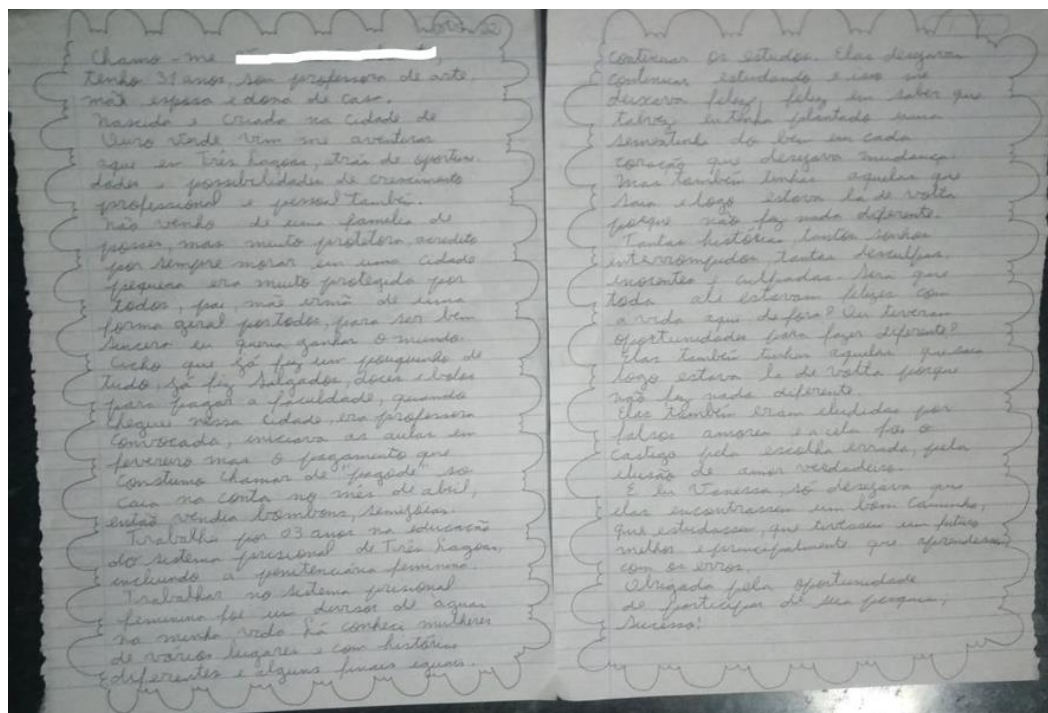 Chamo-me
tenho 31 anos, sou professora de arte,
mãe esposa e dona de casa.
Nascida e criada na cidade de
Ouro Verde vim me aventurar
aqui em Três Lagoas, atrás de oportuni-
dades e possibilidades de crescimento
professional e pessoal também.
Não venho de uma família de
posses, mas muito protetora, acredito
por sempre morar em uma cidade
pequena era muito protegida por
todos, pai, mãe irmã de uma
forma geral por todos, para ser bem
sincera eu queria ganhar o mundo.
Acho que já fiz um pouquinho de
tudo, já fiz salgados, doces e bolos
para pagar a faculdade, quando
cheguei nessa cidade, era professora
convocada, iniciava as aulas em
fevereiro mas o pagamento que
constumo chamar de "pagode" so
caia na conta no mês de abril,
então vendia bombons, semijoias.
Trabalhei por 03 anos na educação
do sistema prisional de Três Lagoas,
incluindo a penitenciária feminina.
Trabalhar no sistema prisional
feminino foi um divisor de aguas
na minha vida lá conheci mulheres
de vários lugares e com histórias
diferentes e alguns finais iguais.
continuar os estudos. Elas desejavam
continuar estudando e isso me
deixava feliz, feliz em saber que
talvez eu tenha plantado uma
sementinha do bem em cada
coração que desejava mudança.
Mas também tinha aquelas que
saia e logo estava la de volta
porque não fez nada diferente.
Tantas histórias, tantos sonhos
interrompidos tantas desculpas,
inocentes e culpadas. Sera que
toda ali estavam felizes com
a vida aqui de fora? Ou tiveram
oportunidades para fazer diferente?
Mas também tinha aquelas que saia
logo estava la de volta porque
não fez nada diferente.
Elas também eram eludidas por
falsos amores e a cela foi o
castigo pela escolha errada, pela
ilusão de amor verdadeiro.
E eu Vanessa, só desejava que
elas encontrassem um bom caminho,
que estudassem, que tivessem um futuro
melhor e principalmente que aprendessem
com os erros.
Obrigada pela oportunidade
de participar de sua pesquisa,
Sucesso!